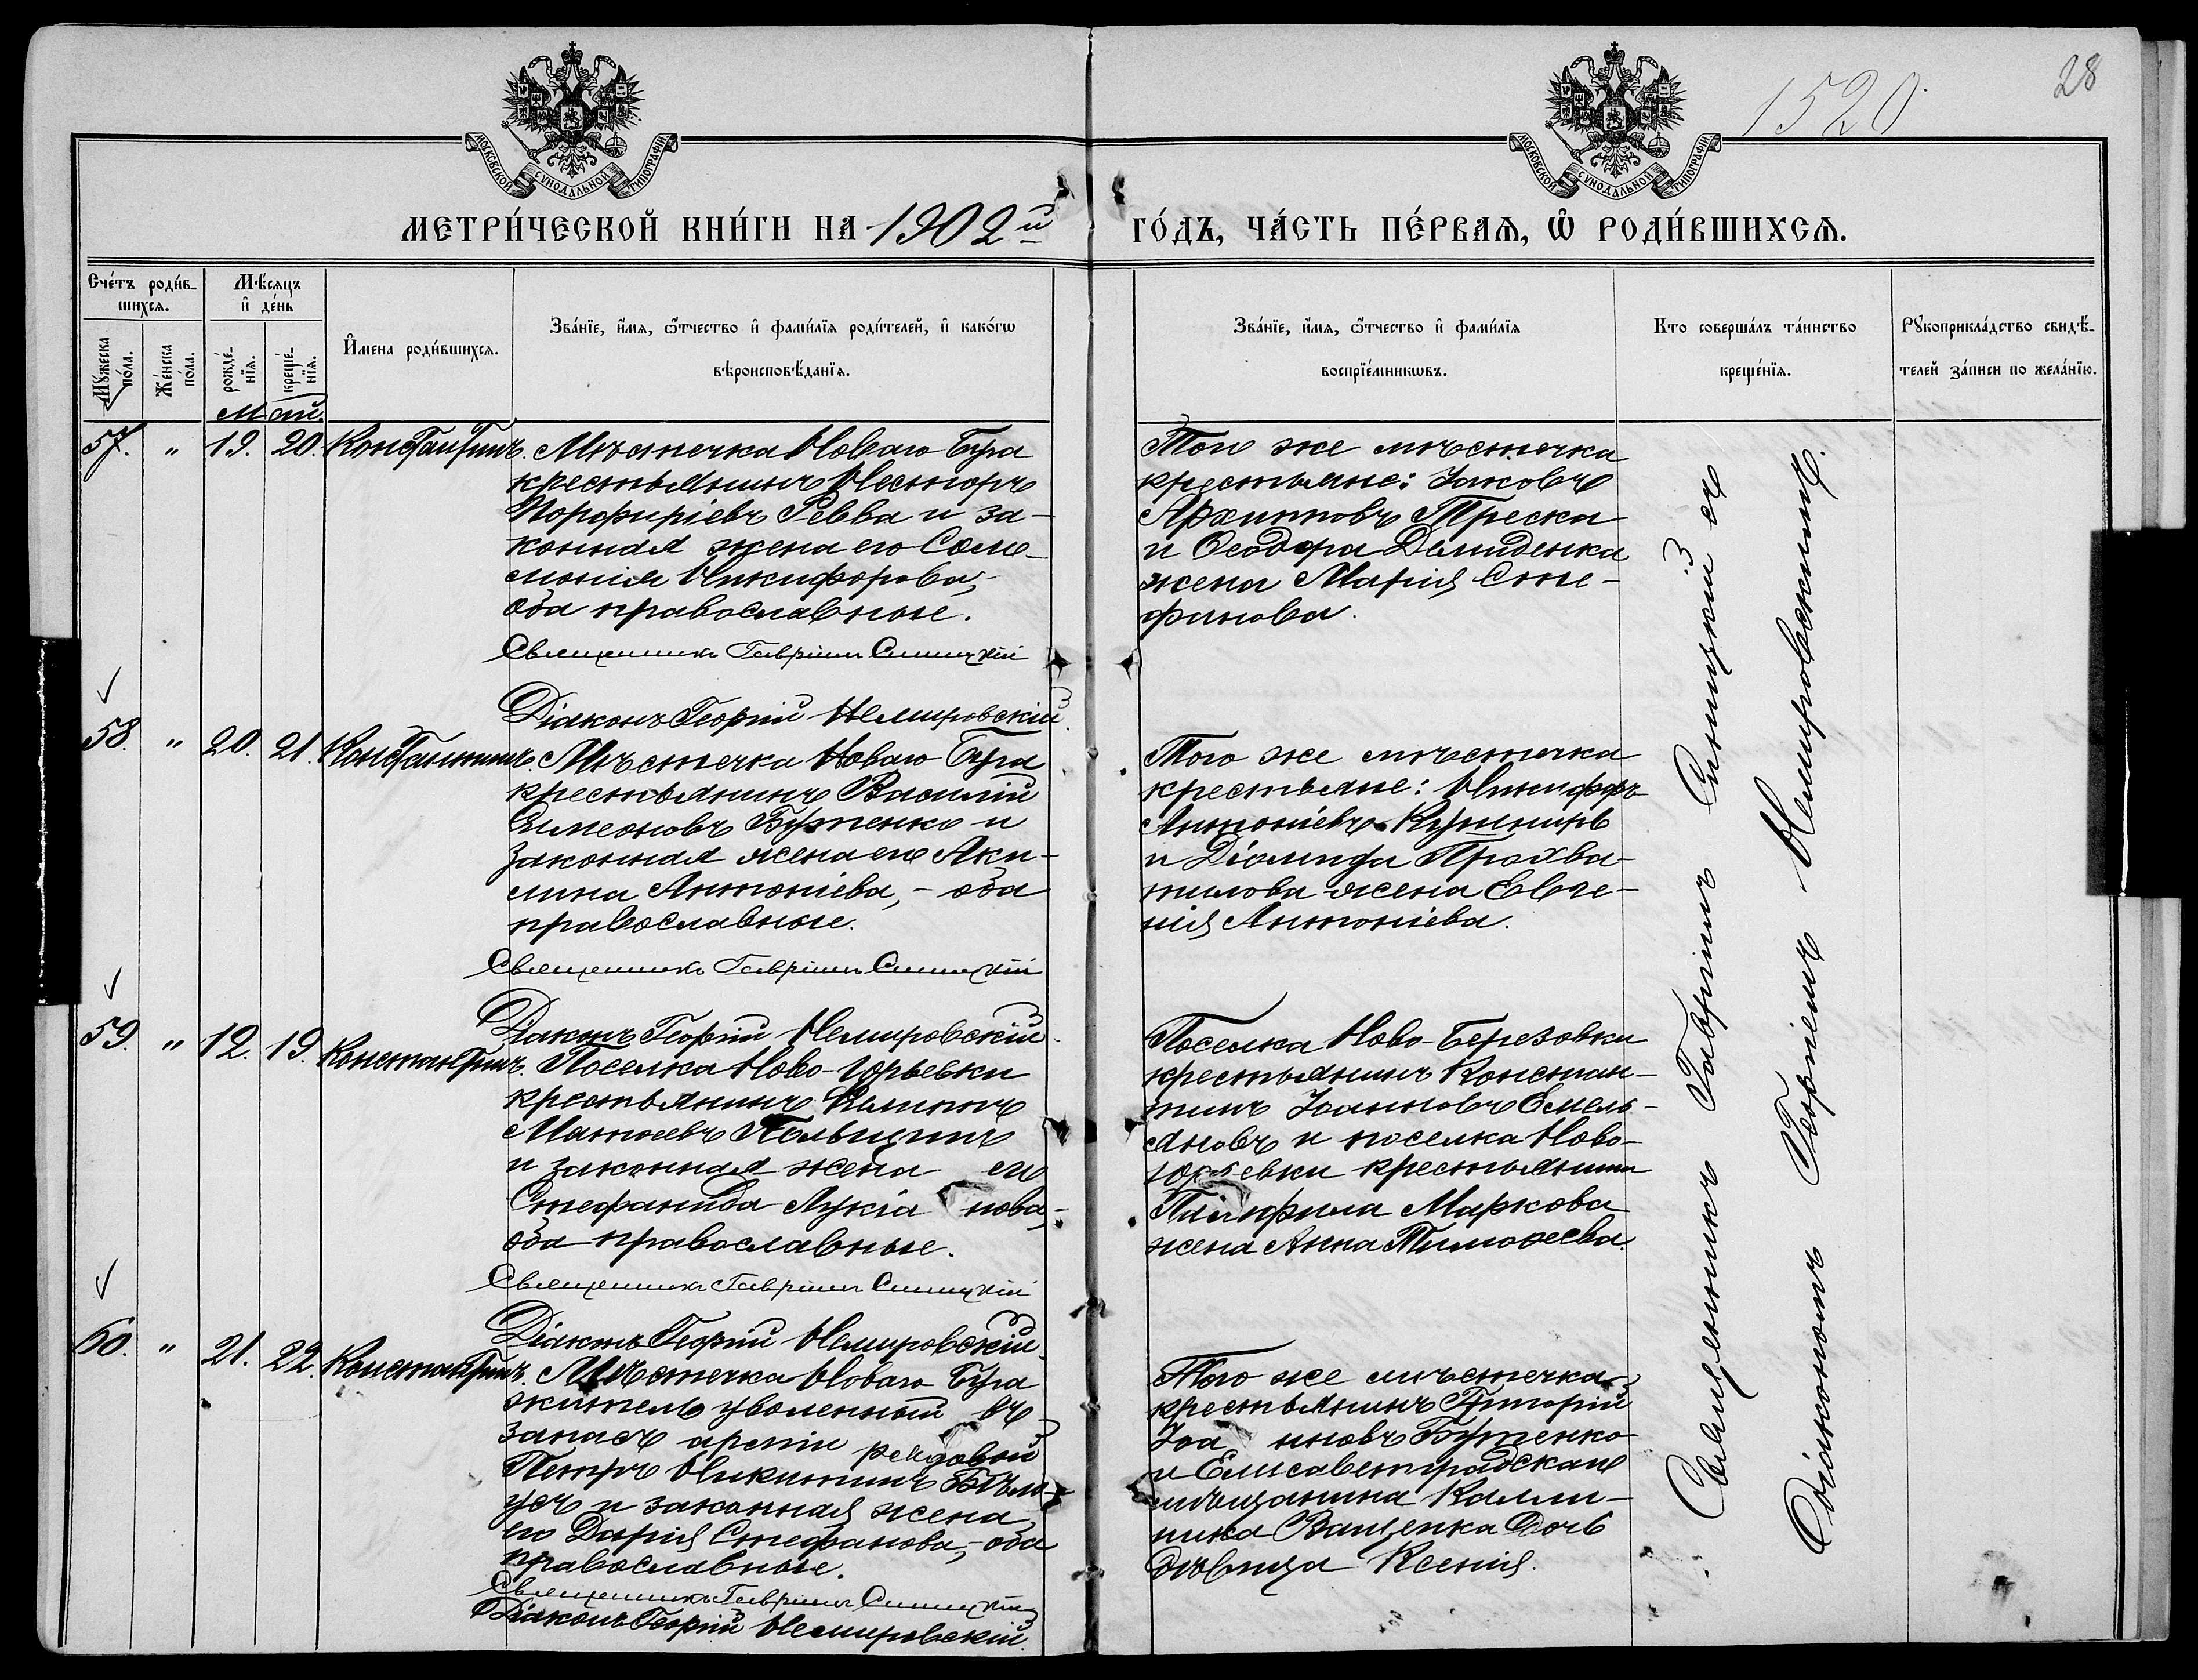 1520.
28
МОСКОВСКОЙ СѴНОДАЛЬНОЙ ТИПОГРАФІИ.
МОСКОВСКОЙ СѴНОДАЛЬНОЙ ТИПОГРАФІИ.
МЕТРИ́ЧЕСКОЙ КНИ́ГИ НА 1902й
ГО́ДЪ, ЧА́СТЬ ПЕ́РВАЯ, Ѽ РОДИ́ВШИХСЯ.
Сче́тъ роди́в-
шихся.
Мѣ́сяцъ
и҆ де́нь
Мꙋ́жеска
по́ла.
Же́нска
по́ла.
рожде́-
нїя.
креще́-
нїя.
И҆мена роди́вшихся.
Зва́нїе, и҆́мя, ѻ҆́тчество и҆ фами́лїя роди́телей, и҆ како́гѡ
вѣроисповѣ́данїя.
Зва́нїе, и҆́мя, ѻ҆́тчество и҆ фами́лїя
воспрїе́мникѡвъ.
Кто соверша́лъ та́инство
креще́нїя.
Рꙋкоприкла́дство свидѣ́-
телей за́писи по жела́нїю.
Май.
57. " 19. 20. Константинъ. Мѣстечка Новаго Буга
крестьянинъ Несторъ
Порфиріевъ Ревва и за-
конная жена его Соло-
монія Никифорова,-
оба православные.
Священникъ Гавріилъ Синицкій
Діаконъ Георгій Немировскій.
Того же мѣстечка
крестьяне: Іаковъ
Архиповъ Треска
и Ѳеодора Демиденка
жена Марія Сте-
фанова.
58. " 20. 21. Константинъ. Мѣстечка Новаго Буга
крестьянинъ Василій
Симеоновъ Бутенко и
законная жена его Аки-
лина Антоніева, - оба
православные.
Священникъ Гавріилъ Синицкій
Діаконъ Георгій Немировскій.
Того же мѣстечка
крестьяне: Никифоръ
Антоніевъ Кушниръ
и Діомида Прохва-
тилова жена Евге-
нія Антоніева.
59. " 12. 19. Константинъ. Поселка Ново-Юрьевки
крестьянинъ Филиппъ
Матѳеевъ
и законная жена его
Стефанида Лукіанова,-
оба православные.
Священникъ Гавріилъ Синицкій
Діаконъ Георгій Немировскій.
Поселка Ново-Березовки
крестьянинъ Констан-
тинъ Іоанновъ Емель-
яновъ и поселка Ново-
юрьевки крестьянина
Памфила Маркова
жена Анна Тимоѳеева.
60. " 21. 22. Константинъ. Мѣстечка Новаго Буга
житель уволенный въ
запасъ арміи рядовой
Петръ Никитинъ Бѣло-
усъ и законная жена
его Дарія Стефанова,- оба
православные.
Священникъ Гавріилъ Синицкій
Діаконъ Георгій Немировскій.
Того же мѣстечка
крестьянинъ Григорій
Іоанновъ Бутенко
и Елисаветградскаго
мѣщанина Калли-
ника Ващенка дочь
дѣвица Ксенія.
Священникъ Гавріилъ Синицкій съ
діакономъ Георгіемъ Немировскимъ.